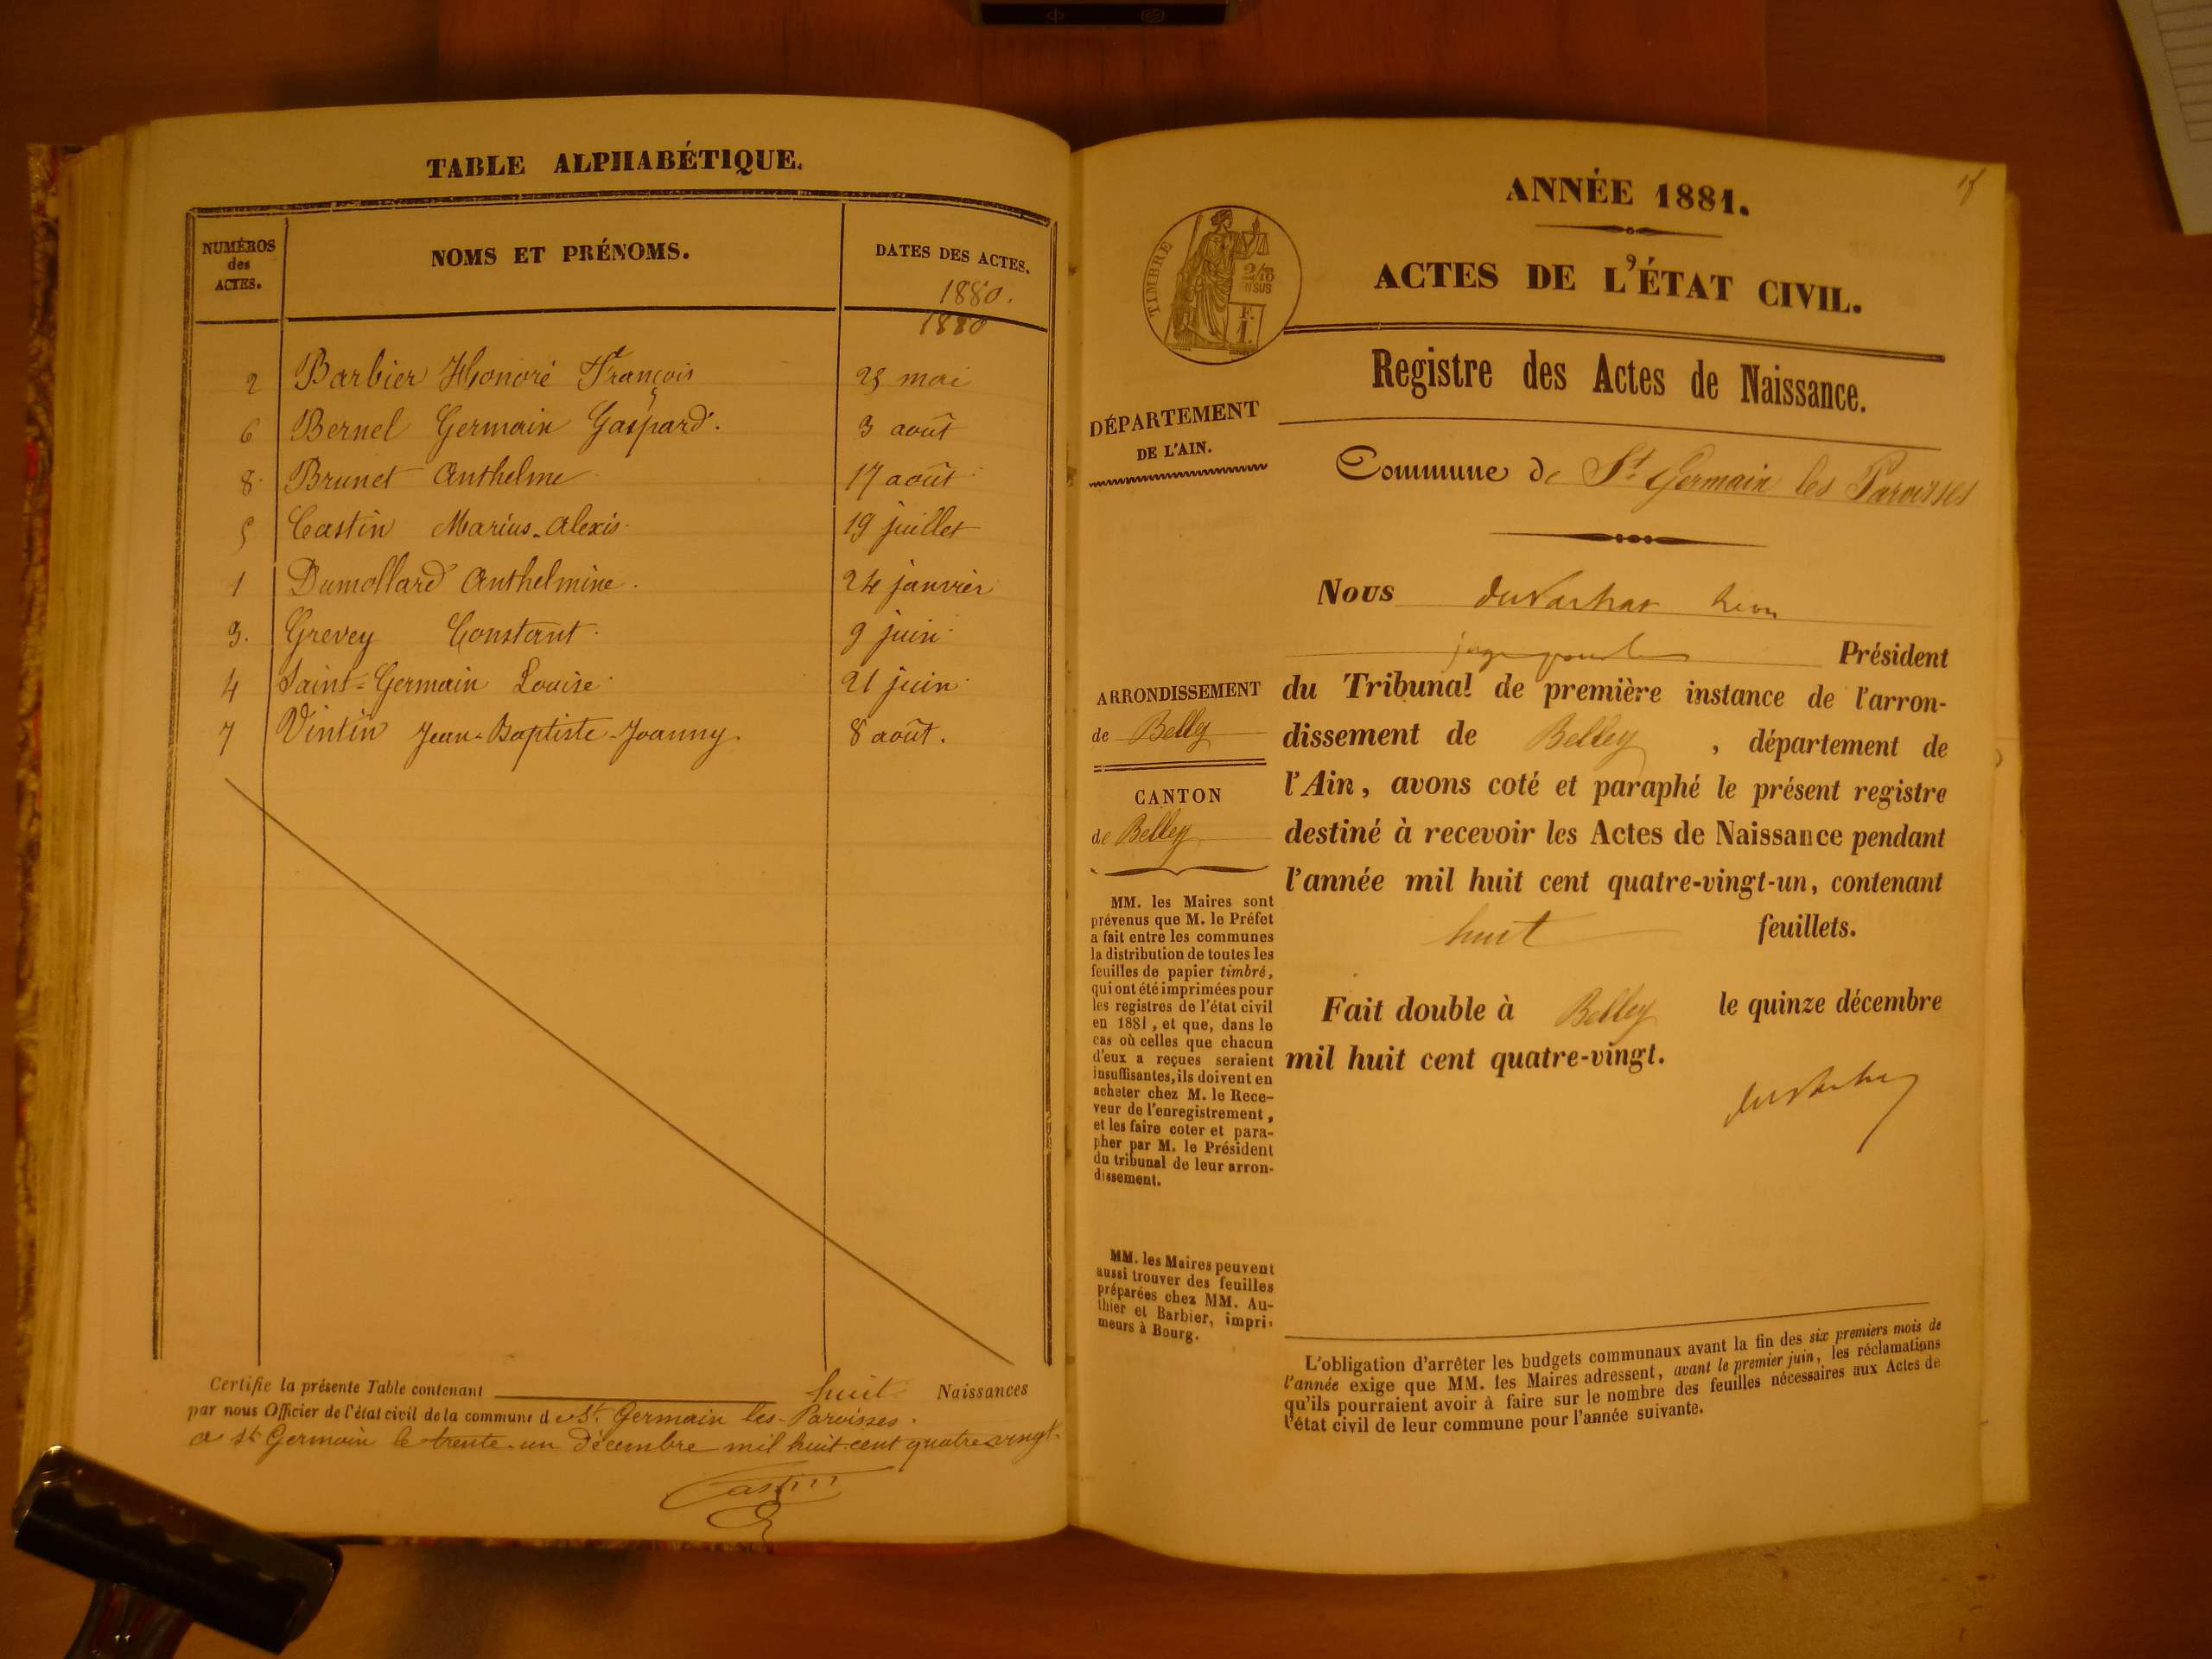 TABLE ALPHABÉTIQUE.
NUMÉROS des ACTES.
NOMS ET PRÉNOMS.
DATES DES ACTES.
1880.
1880
2 Barbier Honoré François 25 mai
6 Bernel Germain Gaspard. 3 août
8 Brunet Anthelme 17 août
5 Castin Marius-Alexis 19 juillet
1 Dumollard Anthelmine. 24 janvier
3. Grevey Constant. 9 juin
4 Saint-Germain Louise 21 juin
7 Vintin Jean-Baptiste-Joanny. 8 août.
Certifie la présente Table contenant huit Naissances
par nous Officier de l'état civil de la commune de St. Germain les-Paroisses.
a St Germain le trente-un Décembre mil huit cent quatre vingt.
Castin
ANNÉE 1881.
ACTES DE L'ÉTAT CIVIL.
TIMBRE
2/10
EN SUS
F.
1.
Registre des Actes de Naissance.
DÉPARTEMENT
DE L'AIN.
Commune de St. Germain les Paroisses
Nous
Président
du Tribunal de première instance de l'arron-
dissement de Belley, département de
l'Ain, avons coté et paraphé le présent registre
destiné à recevoir les Actes de Naissance pendant
l'année mil huit cent quatre-vingt-un, contenant
huit feuillets.
Fait double à Belley le quinze décembre
mil huit cent quatre-vingt.
ARRONDISSEMENT
de Belley
CANTON
de Belley
MM. les Maires sont
prévenus que M. le Préfet
a fait entre les communes
la distribution de toutes les
feuilles de papier timbré,
qui ont été imprimées pour
les registres de l'état civil
en 1881, et que, dans le
cas où celles que chacun
d'eux a reçues seraient
insuffisantes, ils doivent en
acheter chez M. le Rece-
veur de l'enregistrement,
et les faire coter et para-
pher par M. le Président
du tribunal de leur arron-
dissement.
MM. les Maires peuvent
aussi trouver des feuilles
préparées chez MM. Au-
thier et Barbier, impri-
meurs à Bourg.
L'obligation d'arrêter les budgets communaux avant la fin des six premiers mois de
l'année exige que MM. les Maires adressent, avant le premier juin, les réclamations
qu'ils pourraient avoir à faire sur le nombre des feuilles nécessaires aux Actes de
l'état civil de leur commune pour l'année suivante.